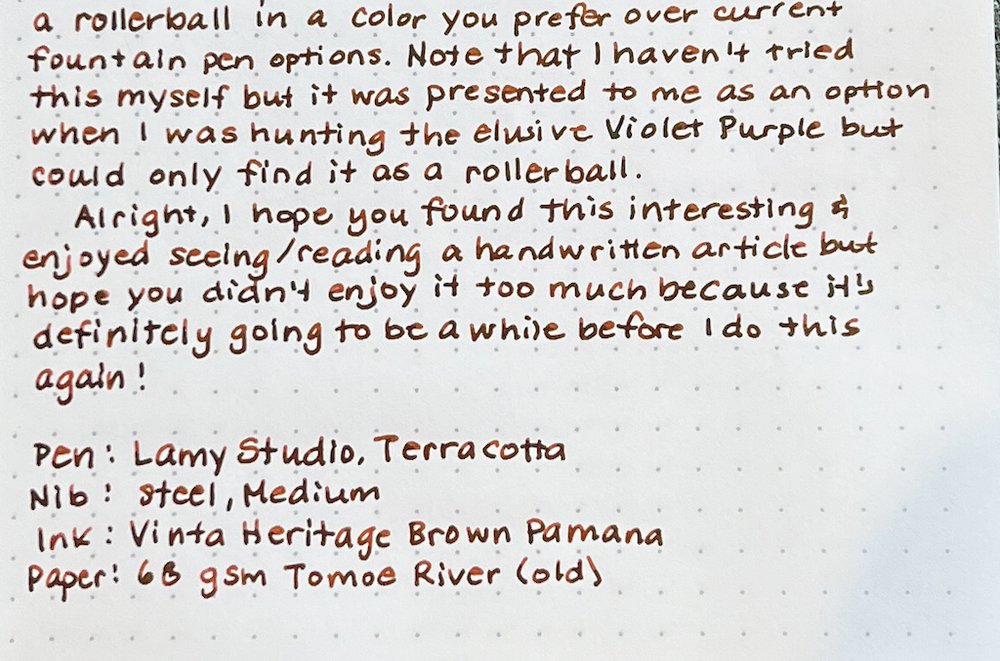 a rollerball in a color you prefer over current
fountain pen options. Note that I haven't tried
this myself but it was presented to me as an option
when I was hunting the elusive Violet Purple but
could only find it as a rollerball.
Alright, I hope you found this interesting &
enjoyed seeing/reading a handwritten article but
hope you didn't enjoy it too much because it's
definitely going to be a while before I do this
again!
Pen: Lamy Studio, Terracotta
Nib: Steel, Medium
Ink: Vinta Heritage Brown Pamana
Paper: 68 gsm Tomoe River (old)